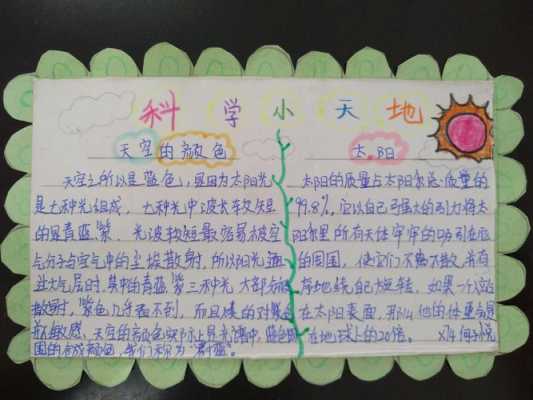 科学小天地
天空的颜色
天空之所以是蓝色，是因为太阳光
是七种光组成，七种光中波长较短
的是青蓝紫，光波较短最容易被空
气分子与空气中的尘埃散射，所以阳光
过大气层时，其中的青蓝紫三种光大部分
散射，紫色几乎看不到，而且的对
敏感，天空的颜色实际上是光谱中蓝色
围的合成颜色，我们称为"蔚蓝"。
太阳
太阳的质量占太阳系总质量的
99.8%，它以自己强大的引力将太
阳系里所有天体牢牢的吸引在
的周围，使它们不离不散，有
地绕自己旋转，如果一个人
在太阳表面，那么他的体重是
在地球上的20倍。